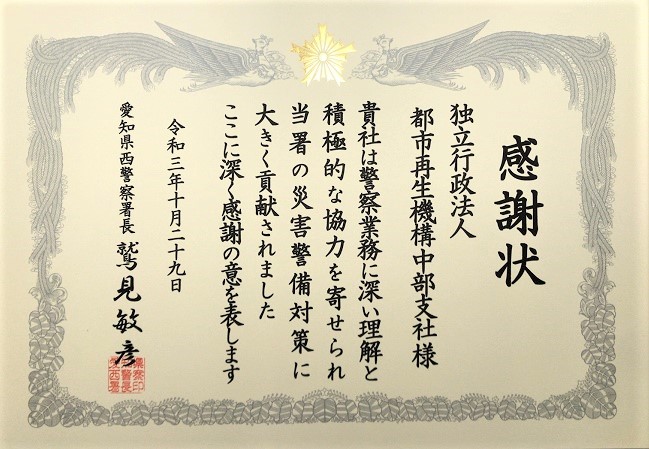 感謝状
独立行政法人
都市再生機構中部支社様
貴社は警察業務に深い理解と
積極的な協力を寄せられ
当署の災害警備対策に
大きく貢献されました
ここに深く感謝の意を表します
令和三年十月二十九日
愛知県西警察署長 鷲見敏彦